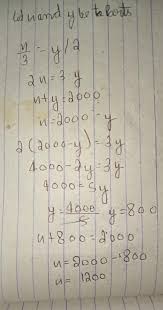 let n and y be to Parts
n/3 = y/2
2n = 3y
n+y = 2000
n = 2000 - y
2(2000-y) = 3y
4000-2y = 3y
4000 = 5y
y = 4000/5 y = 800
n+800 = 2000
n = 2000 - 800
n = 1200